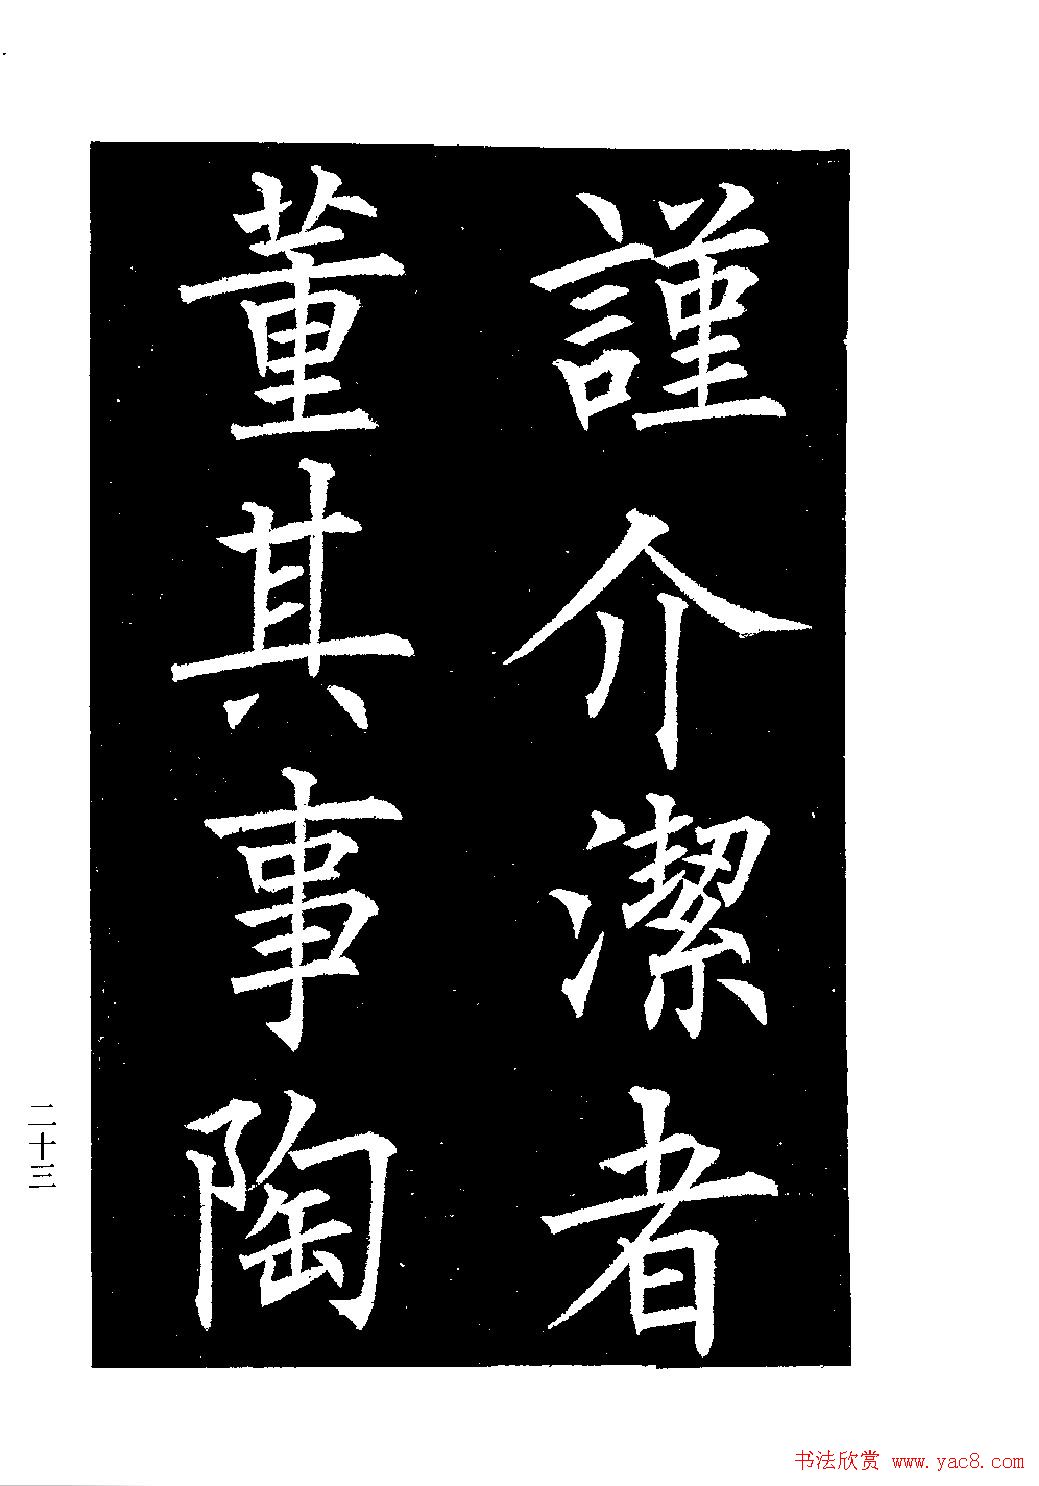 謹介潔者
董其事陶
二十三
书法欣赏 www.yac8.com